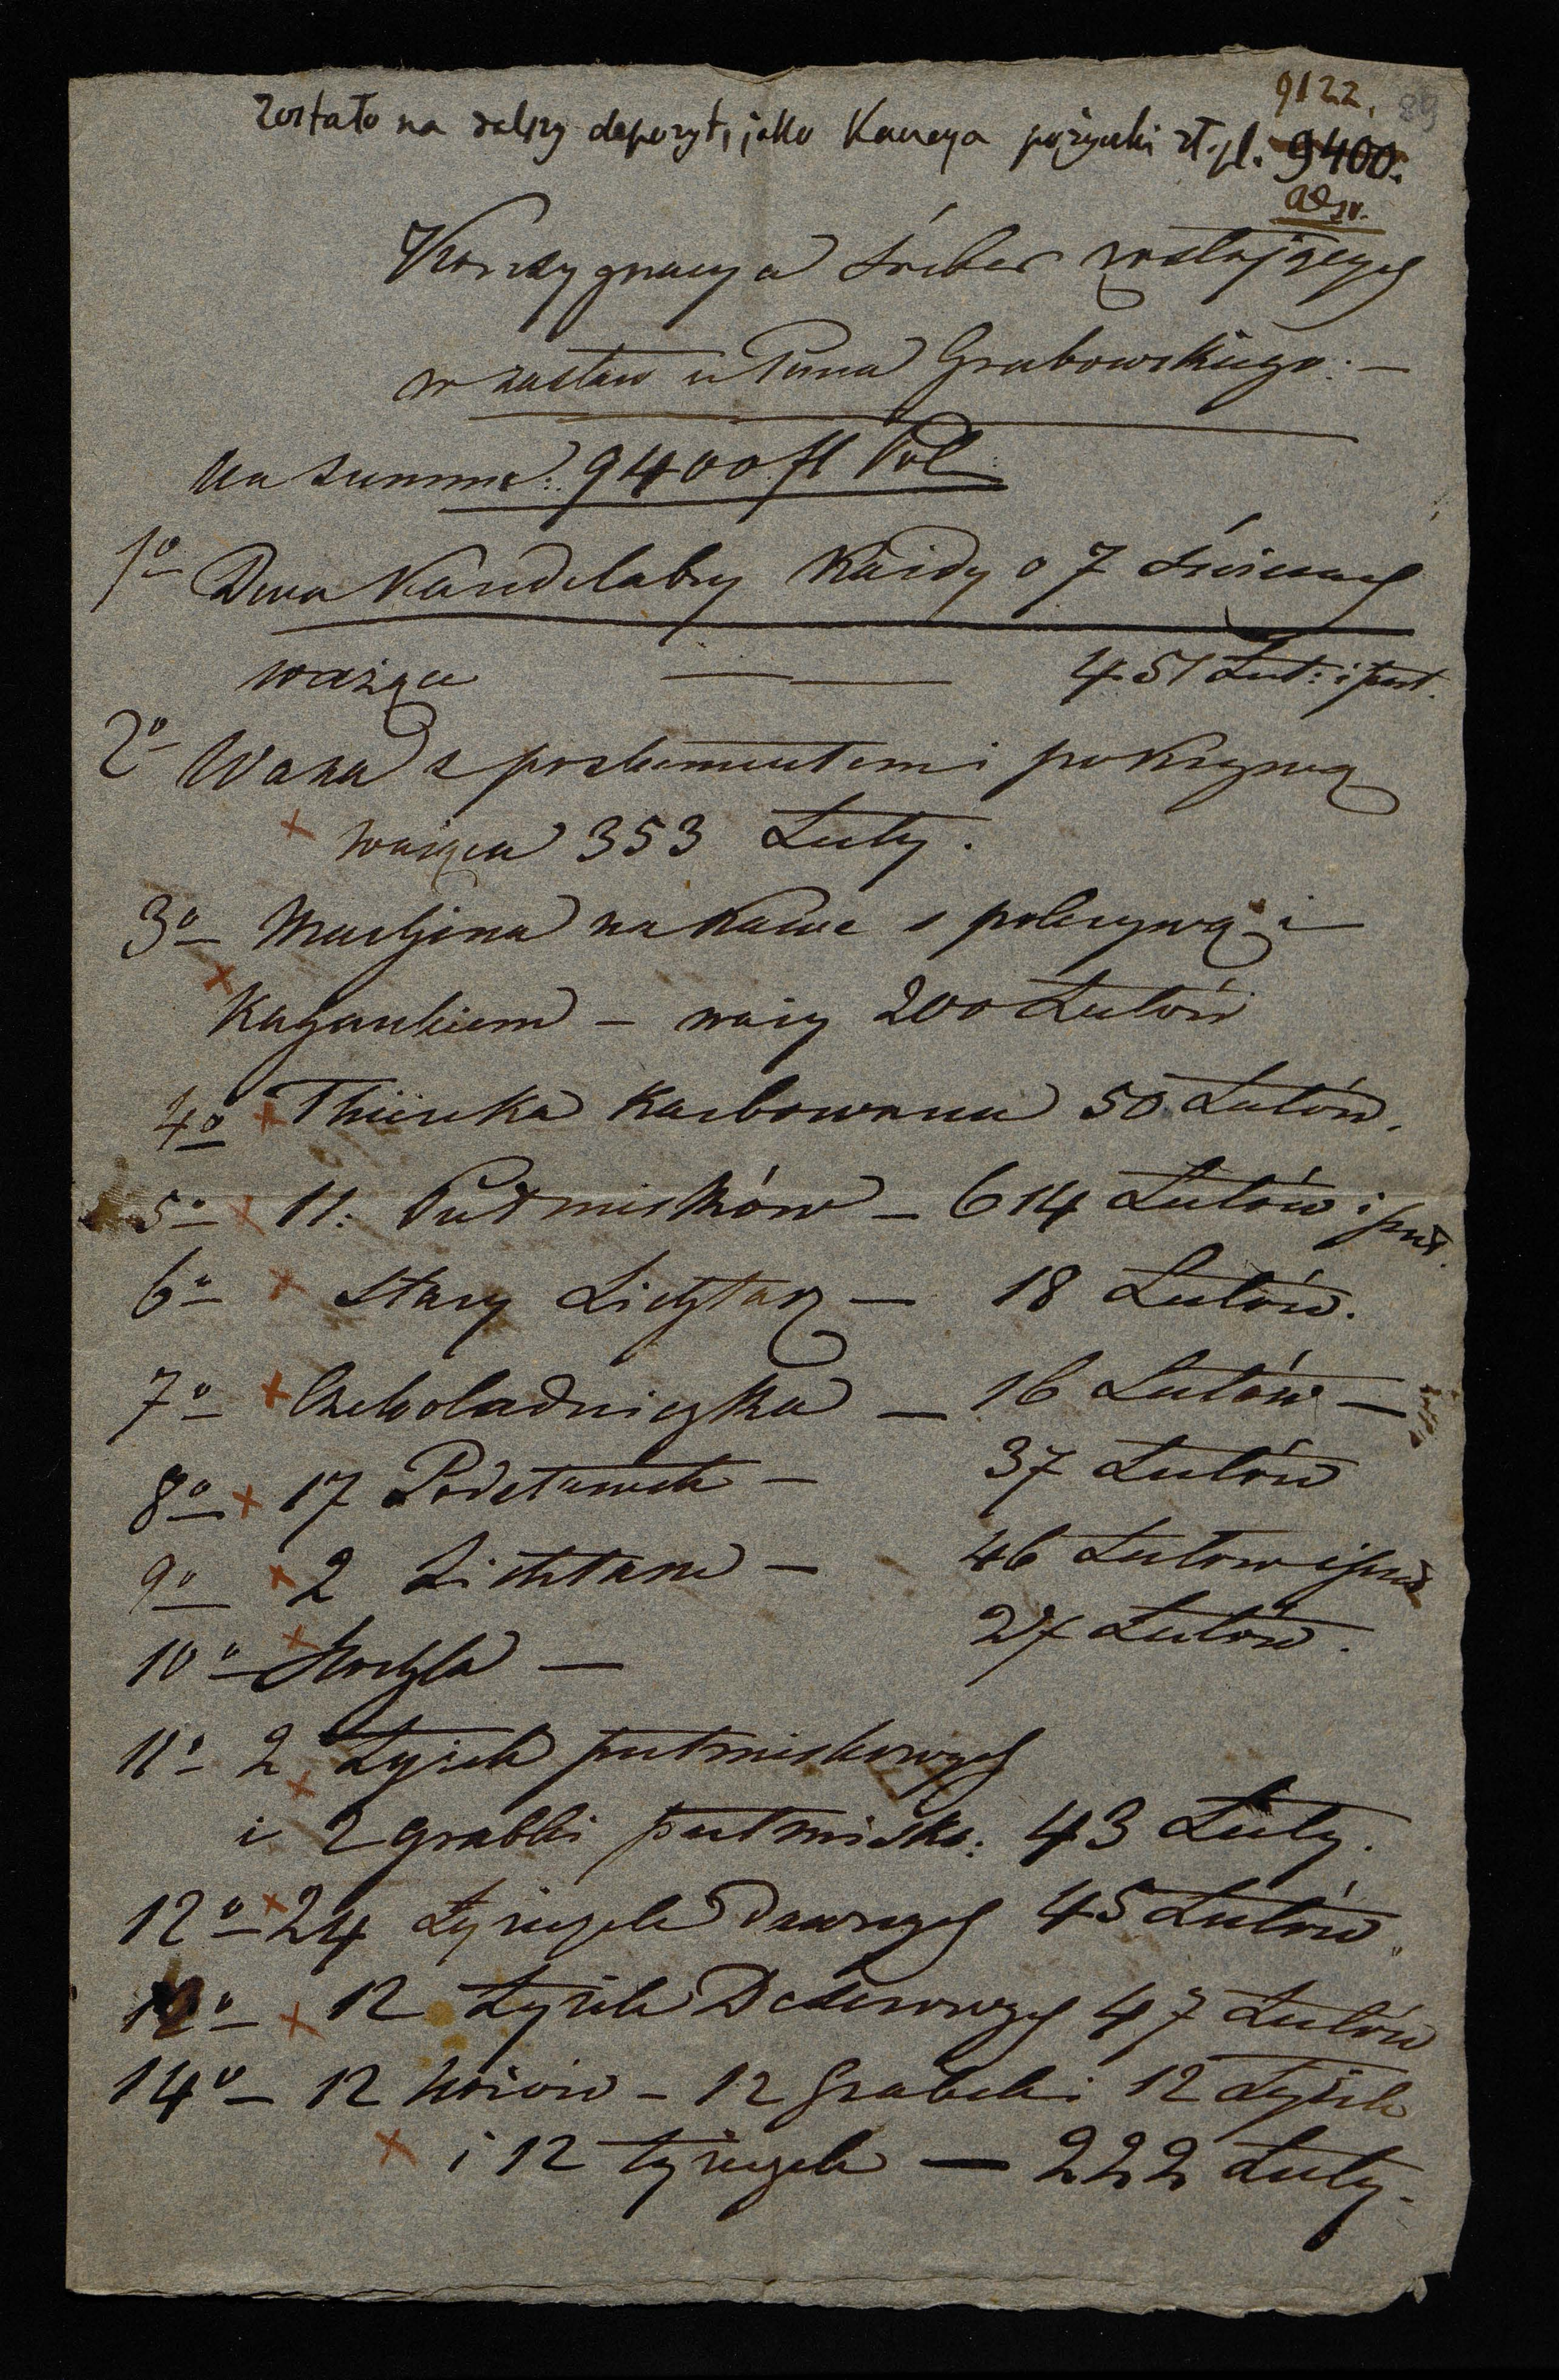 9122. 89
Zostało na dalszy depozyt, jako Kaucya pożyczki zł. pl. 9400.
Konsygnacya śreber zostających
w zastaw u Pana Grabowskiego. —
Na summe: 9400 fl Pol:
1o Dwa Kandelabry Każdy o 7 świecach
ważące — — 451 Lut: i puł.
2o Waza z postumentem i pokrywą
ważąca 353 Luty.
3o Maszyna na Kawe s pokrywą i
Kagankiem – waży 200 Lutów
4o Karbowana 50 Lutów.
5o 11. Puł miskow – 614 Lutów i puł.
6o Stary Lichtarz — 18 Lutów.
7o Czekoladniczka — 16 Lutów —
8o 17 Podstawek — 37 Lutów
9o 2 Lichtarze — 46 Lutow i puł
10o — 27 Lutów.
11o 2 Łyżek putmiskowych
i 2 grabki putmisko: 43 Luty.
12o 24 Łyżeczek Dawnych 45 Lutów
12 Łyżek Deserowych 47 Lutów
14o – 12 Nożów – 12 Grabek i 12 Łyżek
i 12 łyżeczek — 222 Luty.